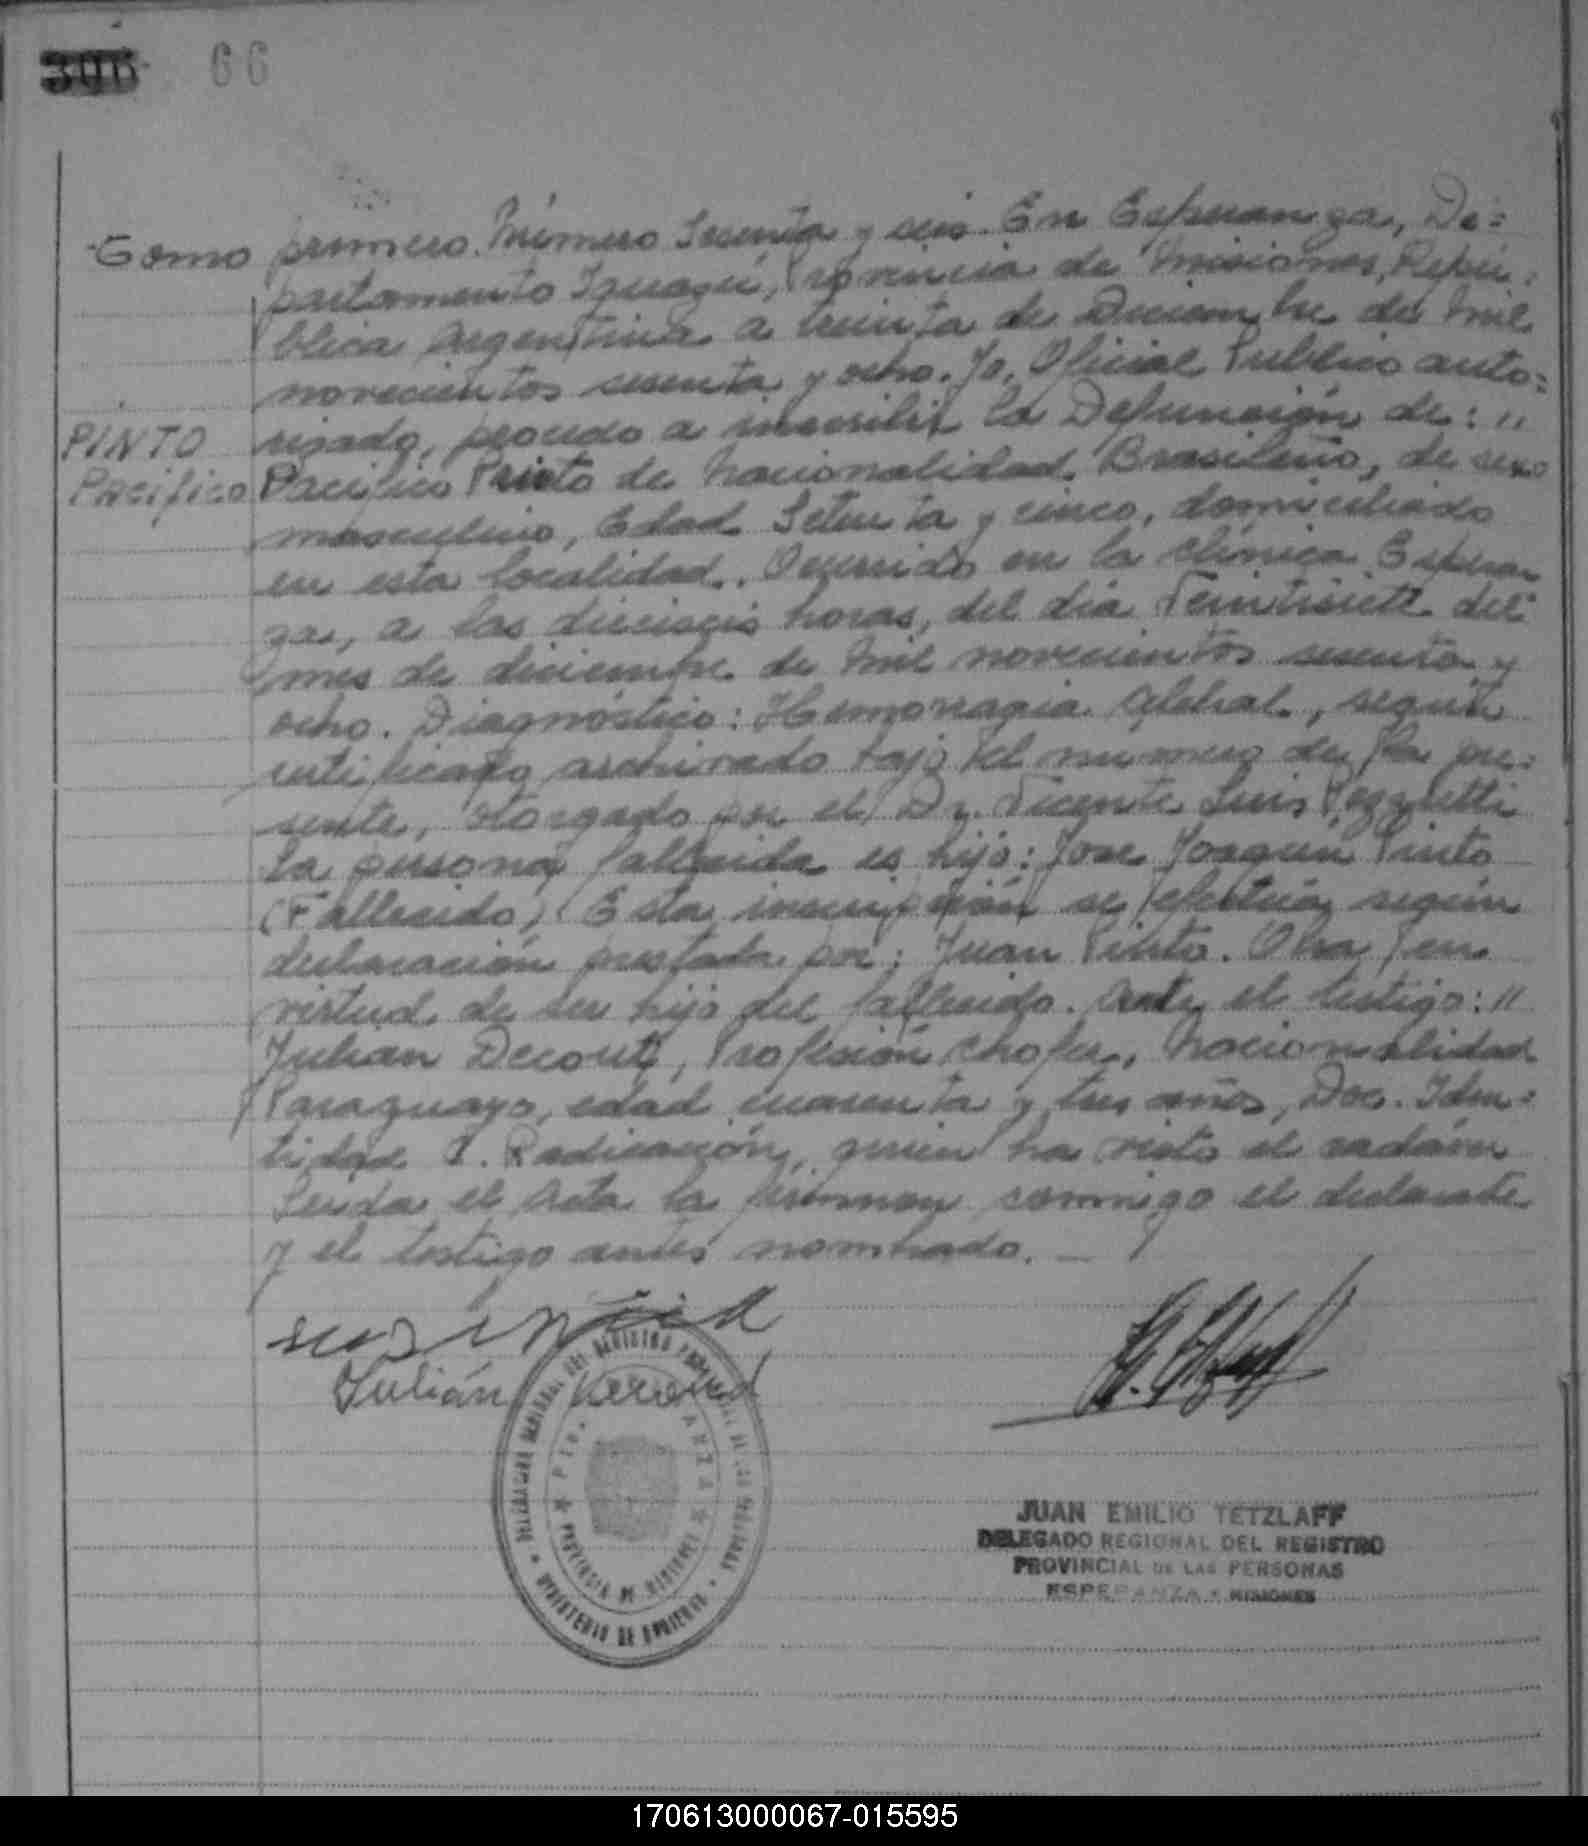 306 66
Tomo primero. Número Sesenta y seis. En Esperanza, De=
partamento Iguazú, Provincia de Misiones, Repú=
blica Argentina a treinta de Diciembre de mil
novecientos sesenta y ocho. Yo, Oficial Publico auto=
PINTO rizado, procedo a inscribir la Defunción de: "
Pacifico Pacifico Pinto de Nacionalidad Brasileño, de sexo
masculino, Edad Setenta y cinco, domiciliado
en esta localidad. Ocurrido en la clínica Esperan
za, a las dieciseis horas, del día Veintisiete del
mes de diciembre de mil novecientos sesenta y
ocho. Diagnóstico: Hemorragia , según
certificado archivado bajo el numero de la pre=
sente, otorgado por el Dr. Vicente Luis Pezzutti
la persona fallecida es hijo: Jose Joaquin Pinto
(Fallecido) Esta inscripción se efectúa según
declaración prestada por: Juan Pinto. Obra en
virtud de ser hijo del fallecido. Ante el testigo: "
Julian Decout, Profesión chofer, Nacionalidad
Paraguayo, edad cuarenta y tres años, Doc. Iden=
tidad C. Radicación, quien ha visto el cadáver
Leida el Acta la firman conmigo el declarante
y el testigo antes nombrado. —
Julián
MINISTERIO DE GOBIERNO
PROVINCIA DE MISIONES
JUAN EMILIO TETZLAFF
DELEGADO REGIONAL DEL REGISTRO
PROVINCIAL DE LAS PERSONAS
ESPERANZA - MISIONES
170613000067-015595